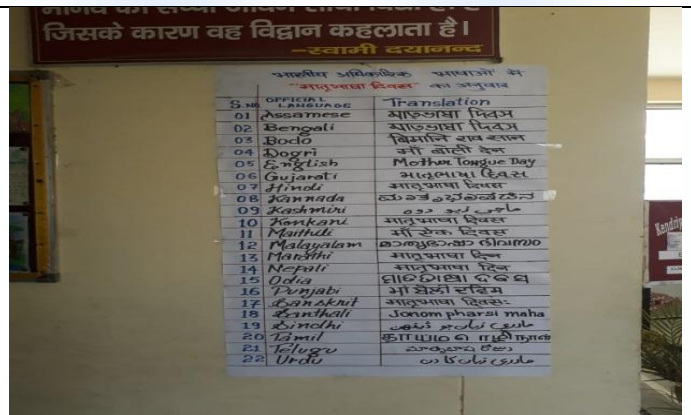 मानव का सच्चा जीवन साथी विद्या ही है
जिसके कारण वह विद्वान कहलाता है।
-स्वामी दयानन्द
भारतीय अधिकारिक भाषाओं में
"मातृभाषा दिवस" का अनुवाद
S.No OFFICIAL LANGUAGE Translation
01 Assamese মাতৃভাষা দিৱস
02 Bengali মাতৃভাষা দিবস
03 Bodo बिमानि राव सान
04 Dogri माँ बोली देन
05 English Mother Tongue Day
06 Gujarati માતૃભાષા દિવસ
07 Hindi मातृभाषा दिवस
08 Kannada
09 Kashmiri
10 Konkani मातृभाषा दिवस
11 Maithili माँ दिवस
12 Malayalam മാതൃഭാഷാ ദിവസം
13 Marathi मातृभाषा दिन
14 Nepali मातृभाषा दिन
15 Odia ମାତୃଭାଷା ଦିବସ
16 Punjabi ਮਾਂ ਬੋਲੀ ਦਿਵਸ
17 Sanskrit मातृभाषा दिवसः
18 Santhali Jonom pharsi maha
19 Sindhi
20 Tamil
21 Telugu
22 Urdu مادری زبان کا دن
Kendriy